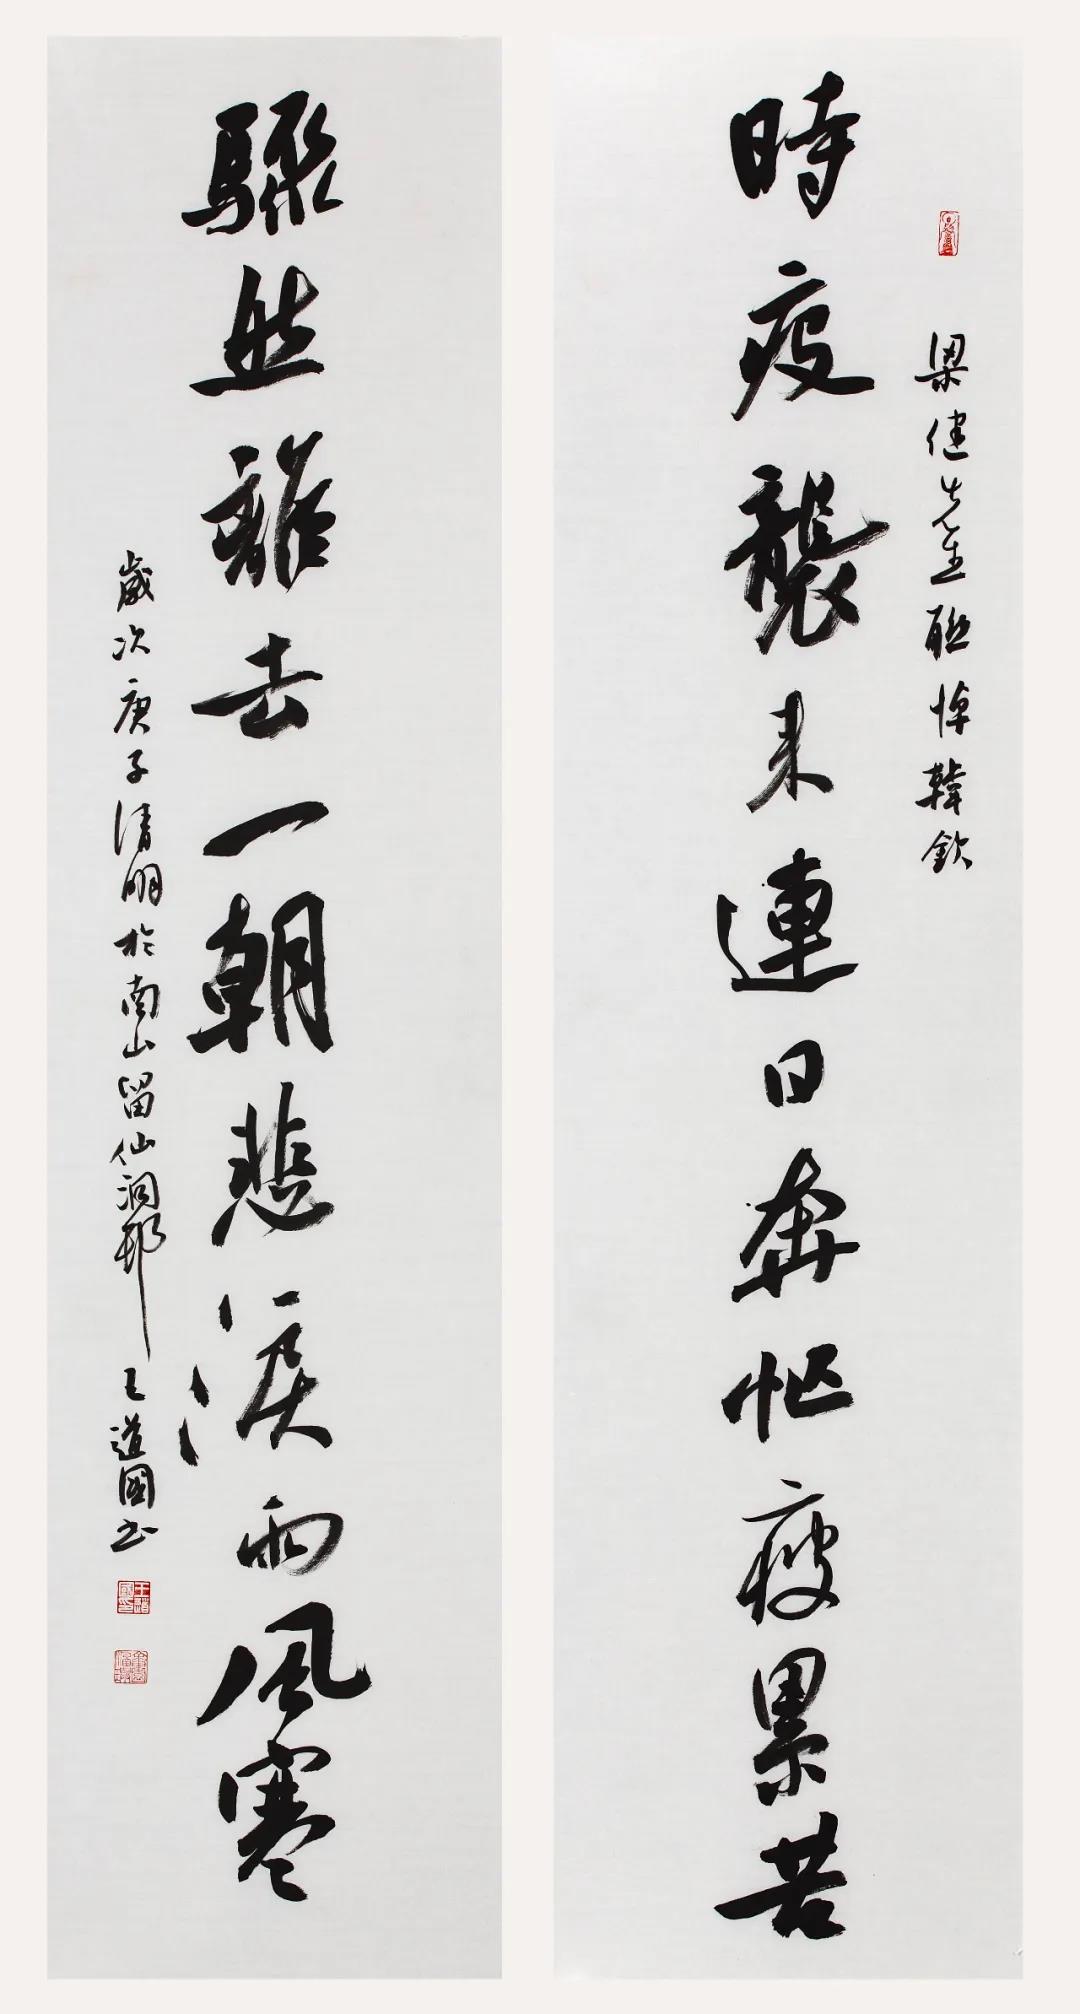 梁健先生聯悼韓欽
時疫襲来連日奔忙瘦累苦
驟然離去一朝悲淚雨風寒
歲次庚子清明於南山留仙洞邨王道國书
王道國印